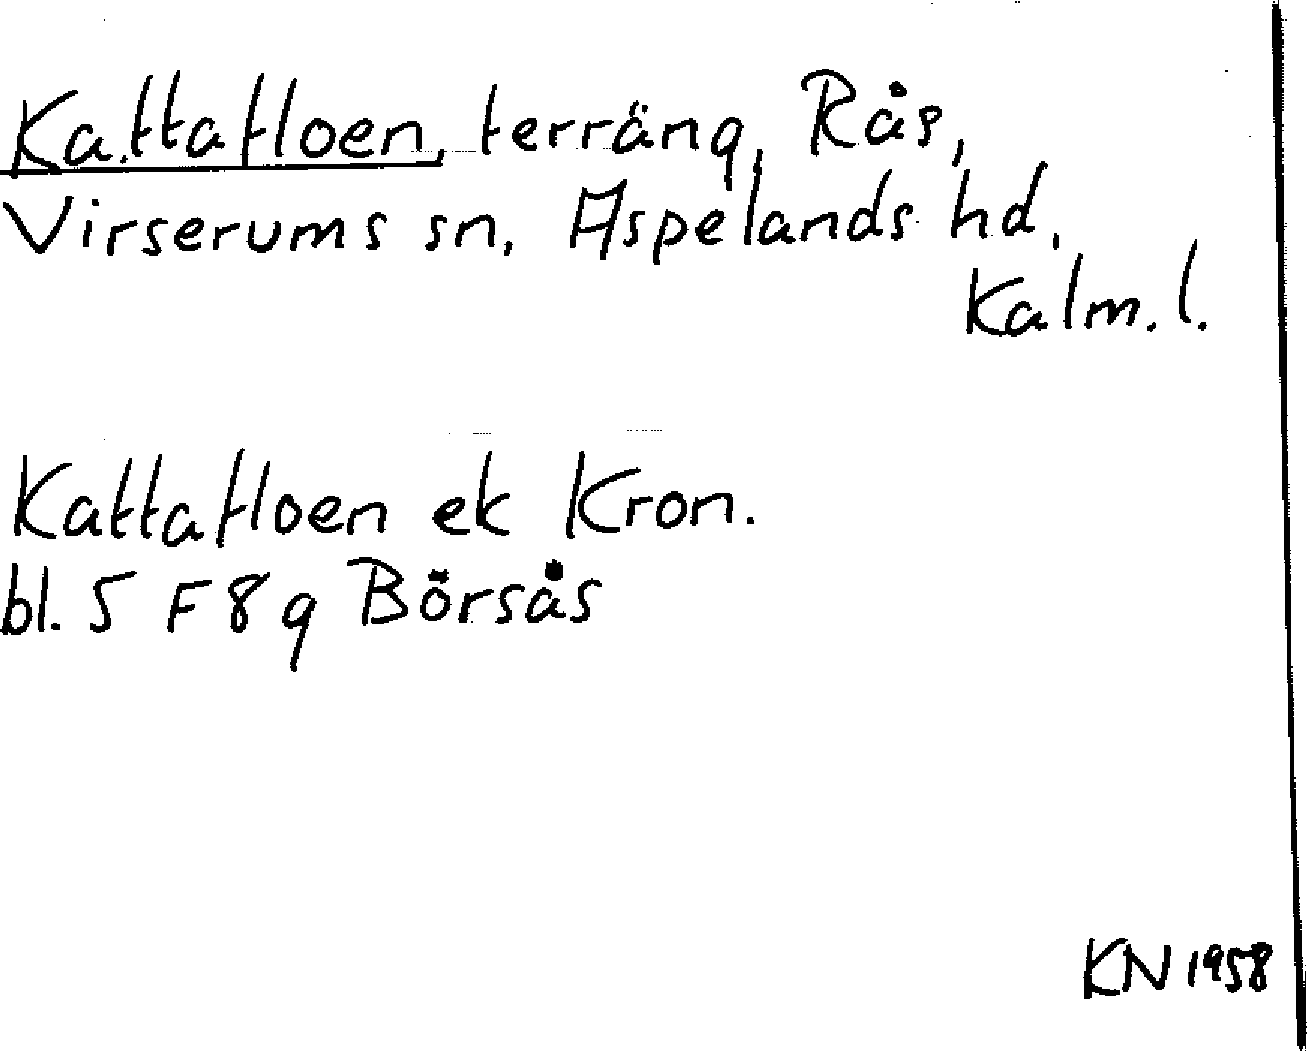 Kattafloen, terräng, Rås,
Virserums sn, Aspelands hd,
Kalm. l.
Kattafloen ek Kron.
bl. 5 F 8 g Börsås
KN 1958